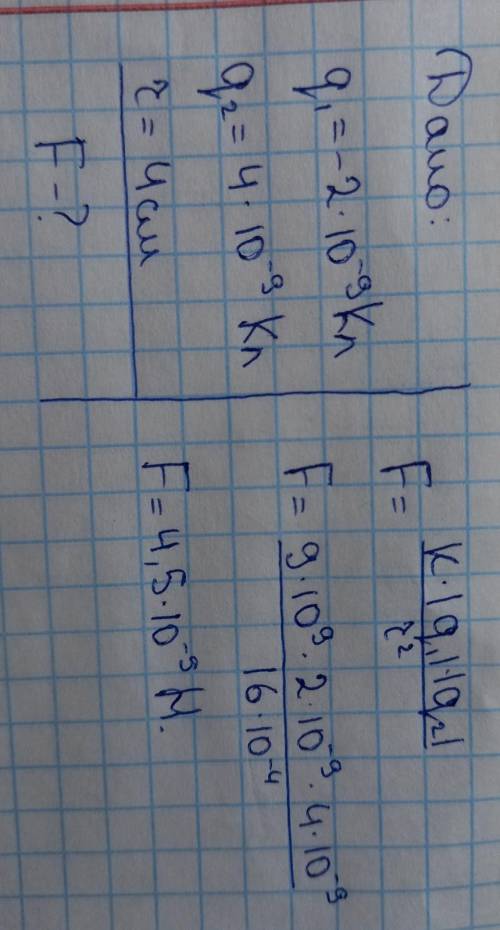 Дано:
q₁ = -2·10⁻⁹ Кл
q₂ = 4·10⁻⁹ Кл
r = 4 см
F - ?
F = k·|q₁|·|q₂| / r²
F = 9·10⁹·2·10⁻⁹·4·10⁻⁹ / 16·10⁻⁴
F = 4,5·10⁻⁵ Н.